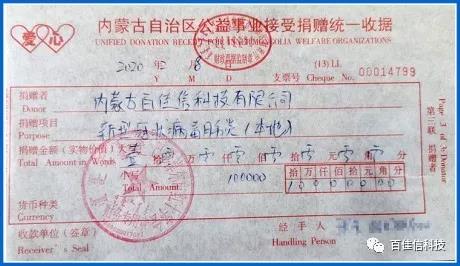 爱心
内蒙古自治区公益事业接受捐赠统一收据
UNIFIED DONATION RECEIPT FOR INNER MONGOLIA WELFARE ORGANIZATIONS
2020 年 2 月 18 日
Y M D
(13) LL
支票号 Cheque No. 00014799
捐赠者 内蒙古百佳信科技有限公司
Donor
捐赠项目 新型冠状病毒肺炎(本地)
Purpose
捐赠金额(实物价值)大写
Total Amount in Words 壹 拾 零 万 零 仟 零 佰 零 拾 零 元 零 角 分
小写
Total Amount 100000
拾 万 仟 佰 拾 元 角 分
1 0 0 0 0 0 0 0
货币种类
Currency
收款单位(签章)
Receiver's Seal
经手人
Handling Person
第三联 捐赠者
Page 3 of 3: Donator
百佳信科技